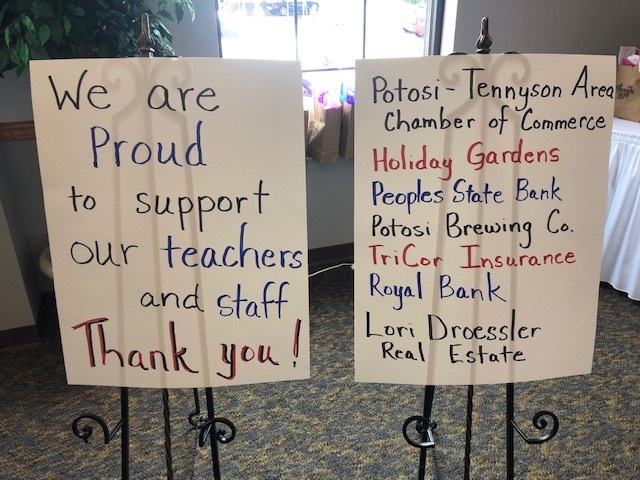 We are
Proud
to support
our teachers
and staff
Thank you!
Potosi-Tennyson Area
Chamber of Commerce
Holiday Gardens
Peoples State Bank
Potosi Brewing Co.
TriCor Insurance
Royal Bank
Lori Droessler
Real Estate